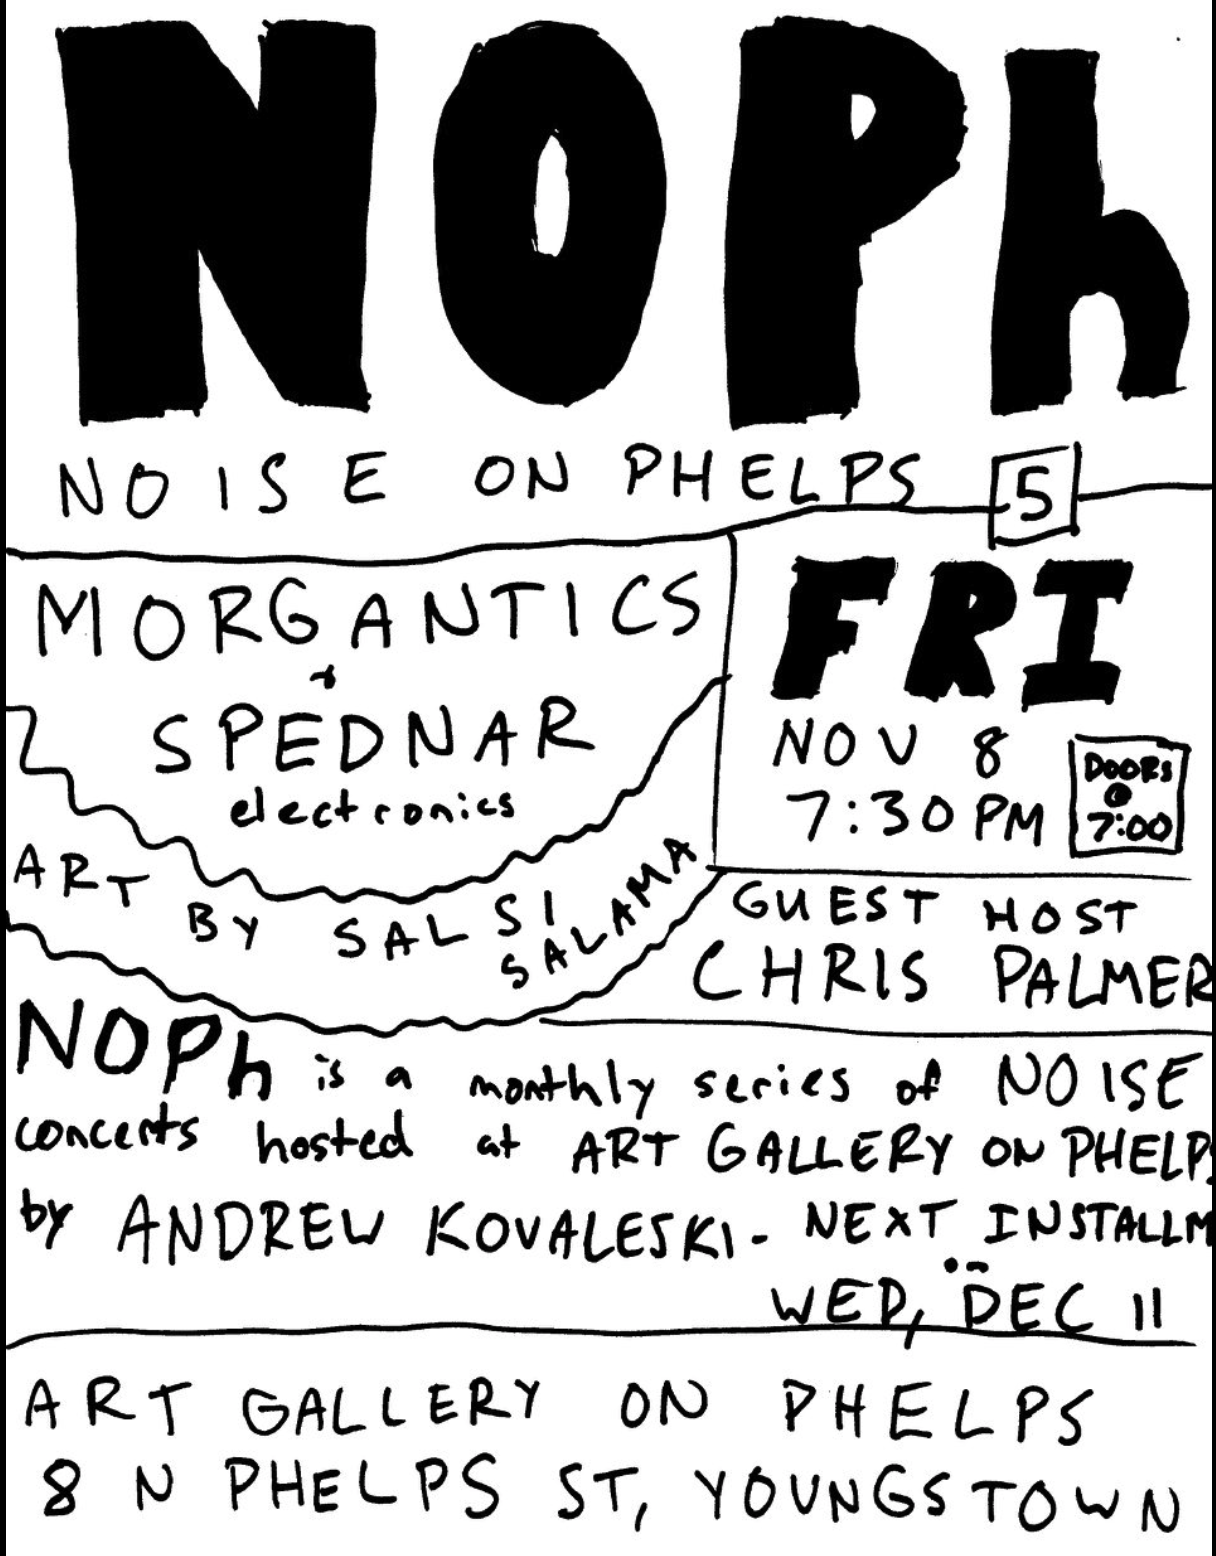 NOPh
NOISE ON PHELPS 5
MORGANTICS
+
SPEDNAR
electronics
FRI
NOV 8
7:30 PM
DOORS
@
7:00
ART BY SALSI SALAMA
GUEST HOST
CHRIS PALMER
NOPh is a monthly series of NOISE
concerts hosted at ART GALLERY ON PHELPS
by ANDREW KOVALESKI - NEXT INSTALLM
WED, DEC 11
ART GALLERY ON PHELPS
8 N PHELPS ST, YOUNGSTOWN